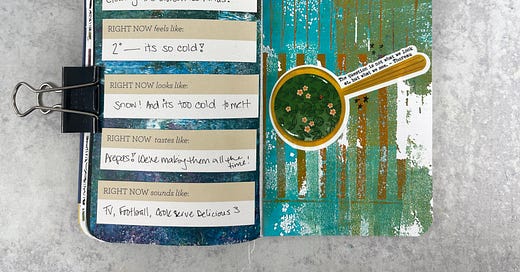 RIGHT NOW feels like:
2° — its so cold!
RIGHT NOW looks like:
Snow! And its too cold to melt
RIGHT NOW tastes like:
Arepas! We're making them all the
time!
RIGHT NOW sounds like:
TV, Football, Cook Serve Delicious 3
The question is not what we look
at, but what we see. - Thoreau